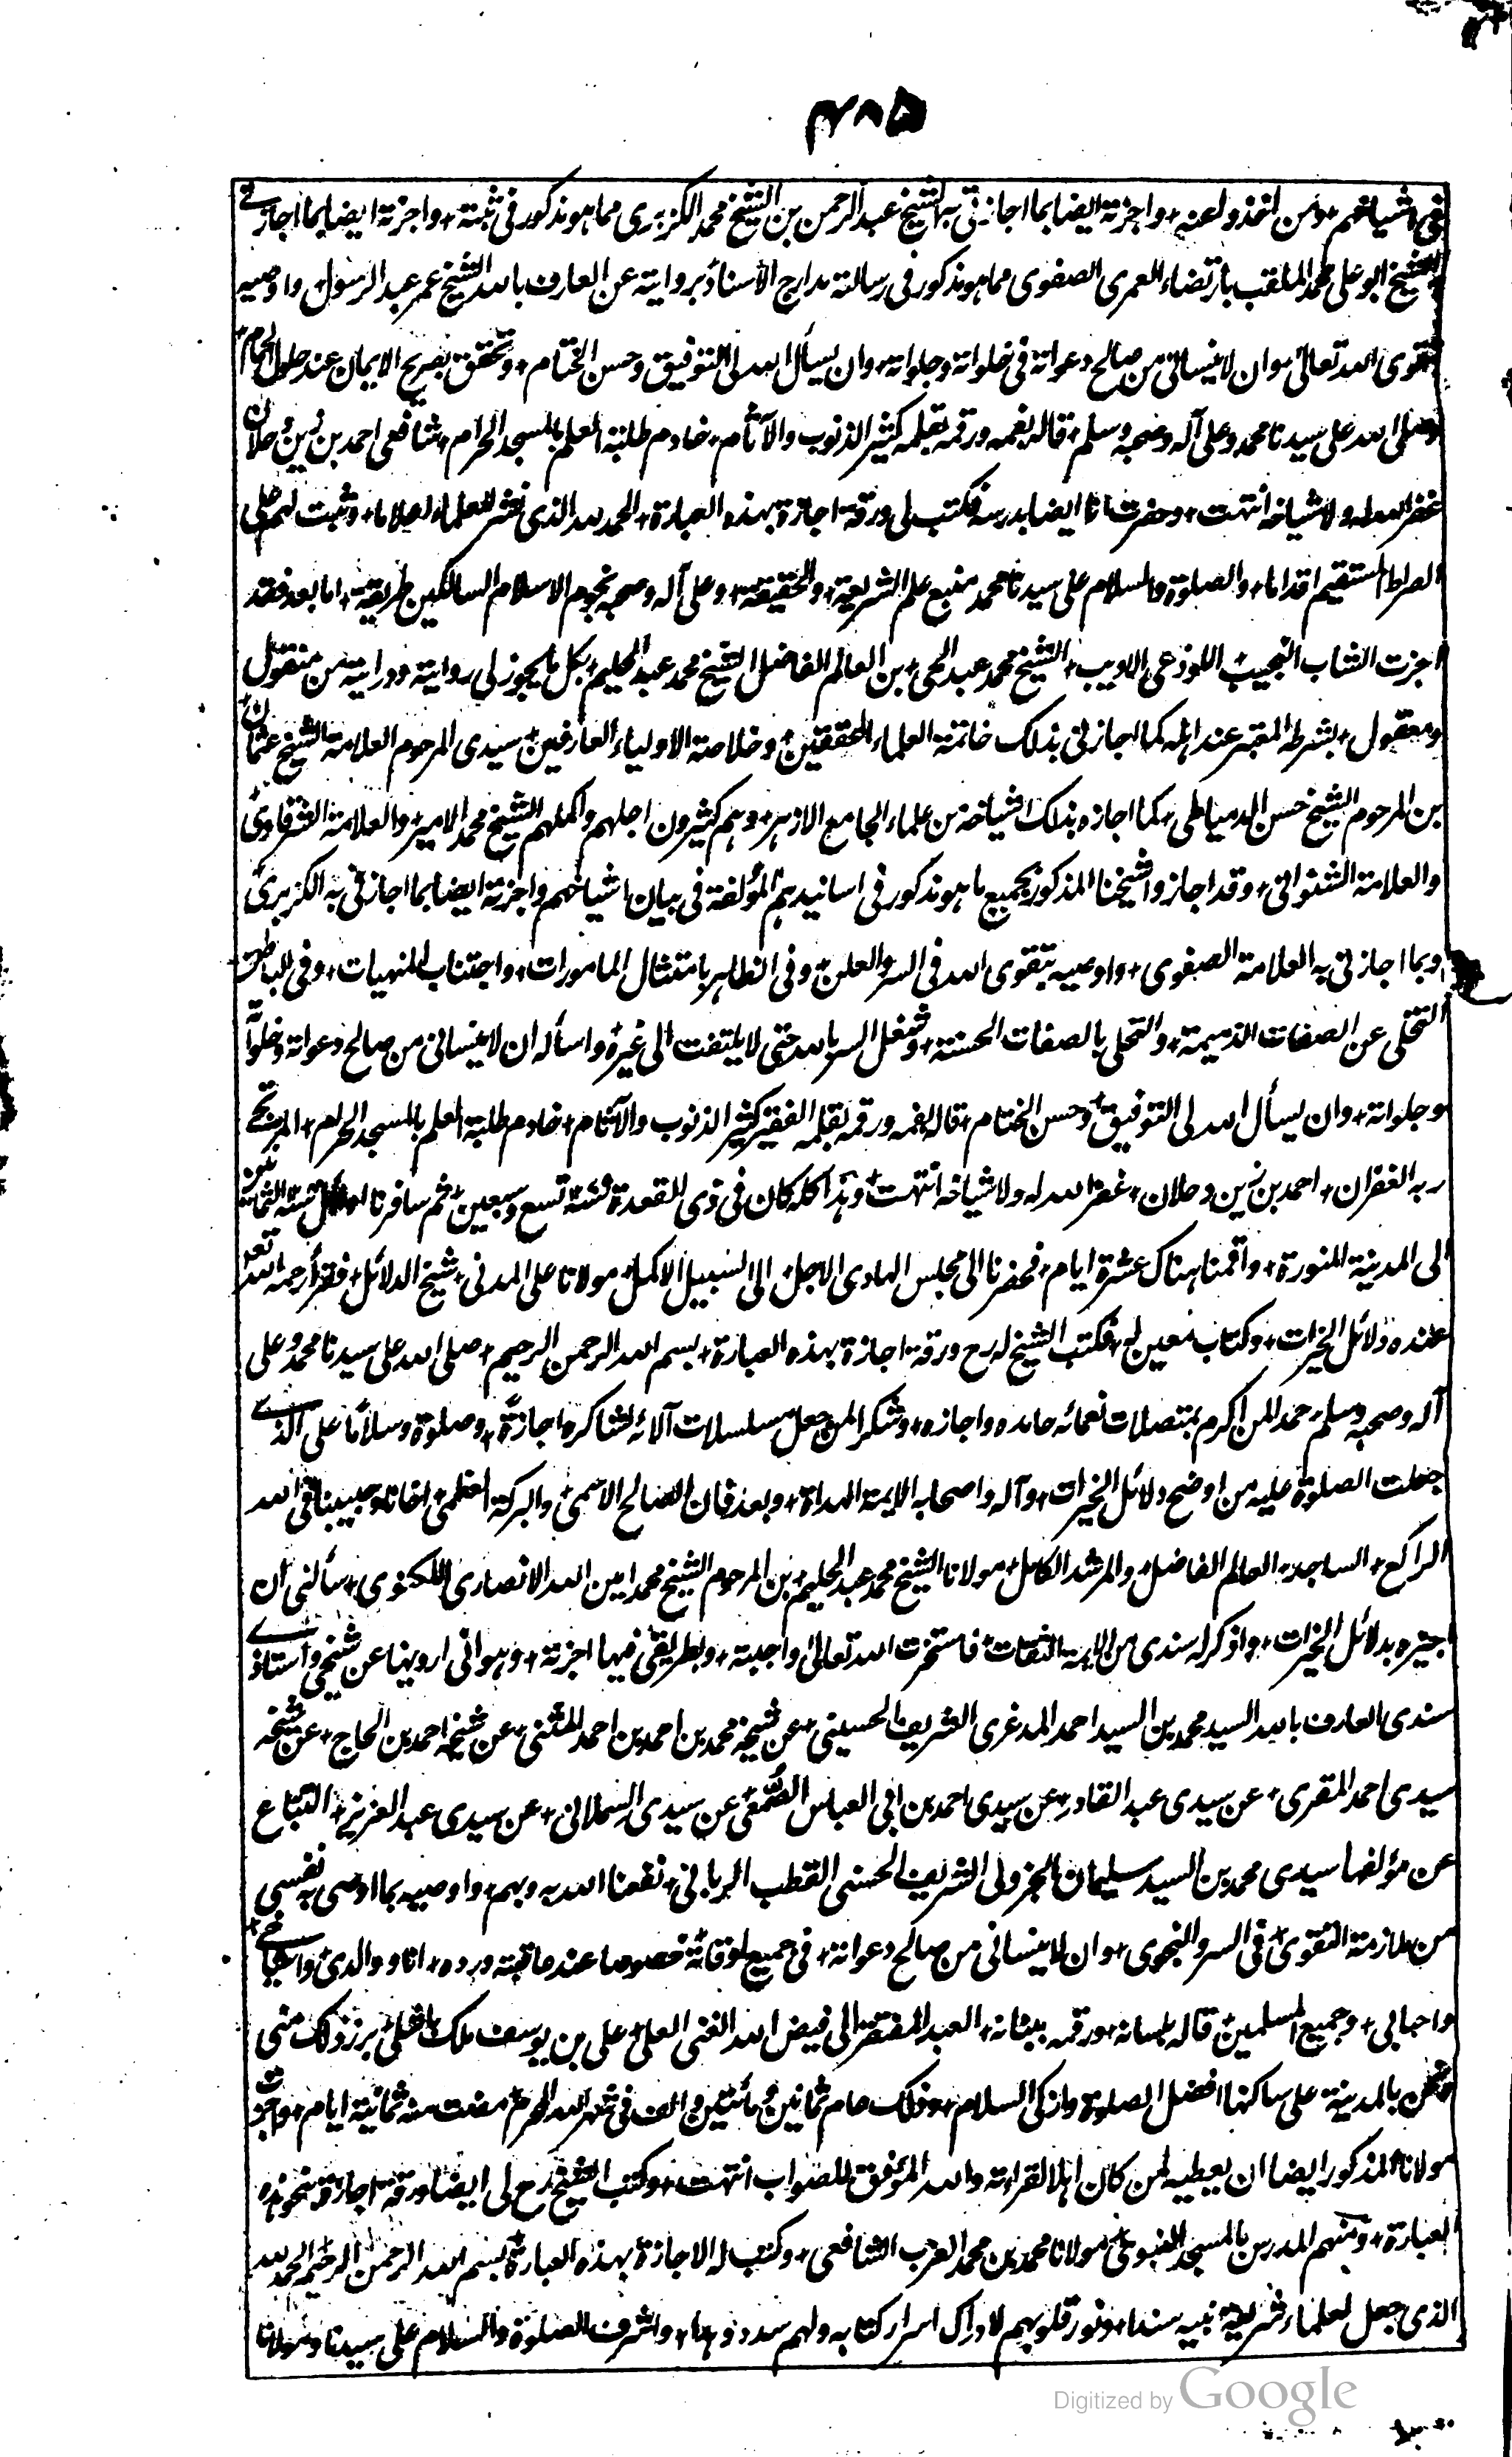 ٣٨٥
في اشياخهم+ ومن اخذوا عنه+ واجزته ايضا بما اجازني به الشيخ عبد الرحمن بن الشيخ محمد الكزبري مما هو مذكور في ثبته+ واجزته ايضا بما اجازني
الشيخ ابو علي محمد الملقب بارتضاء العمري الصفوي مما هو مذكور في رسالته مدارج الاسناد بروايته عن العارف بالله الشيخ عمر عبد الرسول+ واوصيه
بتقوى الله تعالى+ وان لا ينساني من صالح دعواته في خلواته وجلواته+ وان يسأل الله لي التوفيق وحسن الختام+ وتحقق بصريح الايمان عند حلول الحمام+
وصلى الله على سيدنا محمد وعلى آله وصحبه وسلم+ قاله بفمه ورقمه بقلمه كثير الذنوب والآثام+ خادم طلبة العلم بالمسجد الحرام+ شافعي احمد بن زين دحلان
غفر الله له ولاشياخه انتهت+ وحضرت انا ايضا بدرسه فكتب لي ورقة اجازة بهذه العبارة+ الحمد لله الذي نشر للعلماء اعلاما+ وثبت لهم على
الصراط المستقيم اقداما+ والصلوة والسلام على سيدنا محمد منبع علم الشريعة+ والحقيقة+ وعلى آله وصحبه نجوم الاسلام السالكين طريقه+ اما بعد فقد
اجزت الشاب النجيب+ اللوذعي الاديب+ الشيخ محمد عبد الحي+ بن العالم الفاضل الشيخ محمد عبد الحليم+ بكل ما يجوز لي روايته ودرايته من منقول
ومعقول+ بشرطه المعتبر عند اهله كما اجازني بذلك خاتمة العلماء المحققين+ وخلاصة الاولياء العارفين+ سيدي المرحوم العلامة الشيخ عثمان
بن المرحوم الشيخ حسن الدمياطي+ كما اجازه بذلك اشياخه من علماء الجامع الازهر+ وهم كثيرون اجلهم واكملهم الشيخ محمد الامير+ والعلامة الشرقاوي+
والعلامة الشنواني+ وقد اجازوا شيخنا المذكور بجميع ما هو مذكور في اسانيدهم المؤلفة في بيان اشياخهم واجزته ايضا بما اجازني به الكزبري+
وبما اجازني به العلامة الصفوي+ واوصيه بتقوى الله في السر والعلن+ وفي الظاهر بامتثال المامورات+ واجتناب المنهيات+ وفي الباطن
التخلي عن الصفات الذميمة+ والتحلي بالصفات الحسنة+ وشغل السر بالله حتى لا يلتفت الى غيره+ واسأله ان لا ينساني من صالح دعواته وخلواته
وجلواته+ وان يسأل الله لي التوفيق+ وحسن الختام+ قاله بفمه ورقمه بقلمه الفقير كثير الذنوب والآثام+ خادم طلبة العلم بالمسجد الحرام+ المرتجي
ربه الغفران+ احمد بن زين دحلان+ غفر الله له ولاشياخه انتهت+ وهذا كله كان في ذي القعدة سنة تسع وسبعين+ ثم سافرنا اوائل سنة الثمانين
الى المدينة المنورة+ واقمنا هناك عشرة ايام+ فحضرنا الى مجلس الهادي الاجل+ الى السبيل الاكمل+ مولانا علي المدني+ شيخ الدلائل+ فقرأ رحمه الله تعالى
عنده دلائل الخيرات+ وكتاب فكتب الشيخ له رح ورقة اجازة بهذه العبارة+ بسم الله الرحمن الرحيم+ صلى الله على سيدنا محمد وعلى
آله وصحبه وسلم+ حمدا لمن اكرم بمتصلات نعمائه حامده واجازه+ وشكرا لمن جعل مسلسلات آلائه لشاكره اجازة+ وصلوة وسلاما على الذي
جعلت الصلوة عليه من اوضح دلائل الخيرات+ وآله واصحابه الايمة الهداة+ وبعد فان الصالح الاسمى+ والبركة العظمى+ اخانا وحبيبنا في الله
الراكع+ الساجد+ العالم الفاضل+ والمرشد الكامل+ مولانا الشيخ محمد عبد الحليم+ بن المرحوم الشيخ محمد امين الله الانصاري اللكنوي+ سألني ان
اجيزه بدلائل الخيرات+ واذكر له سندي من الايمة الثقات+ فاستخرت الله تعالى واجبته+ وبطريقتي فيها اجزته+ وهو اني ارويها عن شيخي واستاذي
سندي العارف بالله السيد محمد بن السيد احمد المدغري الشريف الحسيني+ عن شيخه محمد بن احمد بن احمد المثنى+ عن شيخه احمد بن الحاج+ عن شيخه
سيدي احمد المقري+ عن سيدي عبد القادر+ عن سيدي احمد بن ابي العباس الصمعي+ عن سيدي السملالي+ عن سيدي عبد العزيز+ التباع
عن مؤلفها سيدي محمد بن السيد سليمان الجزولي الشريف الحسني القطب الرباني+ نفعنا الله به وبهم+ واوصيه بما اوصي به نفسي
من ملازمة التقوى+ في السر والنجوى+ وان لا ينساني من صالح دعواته+ في جميع اوقاته خصوصا عند خاتمة ورده+ انا ووالدي+ واشياخي+
واحبابي+ وجميع المسلمين+ قاله بلسانه+ ورقمه ببنانه+ العبد المفتقر الى فيض الله الغني العلي+ علي بن يوسف ملك باشلي+ برز ذلك مني
ونحن بالمدينة على ساكنها افضل الصلوة وازكى السلام+ وذلك عام ثمانين ومأتين والف في شهر الله المحرم+ مضت منه ثمانية ايام+ واجزت
مولانا المذكور ايضا ان يعطيه لمن كان اهلا لقراءته والله الموفق للصواب انتهت+ وكتب الشيخ رح لي ايضا ورقة اجازة نحو هذه
العبارة+ ومنهم المدرس بالمسجد النبوي+ مولانا محمد بن محمد العزب الشافعي+ وكتب له الاجازة بهذه العبارة+ بسم الله الرحمن الرحيم+ الحمد لله
الذي جعل لعلماء شريعة نبيه سندا+ ونور قلوبهم لادراك اسرار كتابه ولهم سدد وهدا+ واشرف الصلوة والسلام على سيدنا ومولانا
Digitized by Google